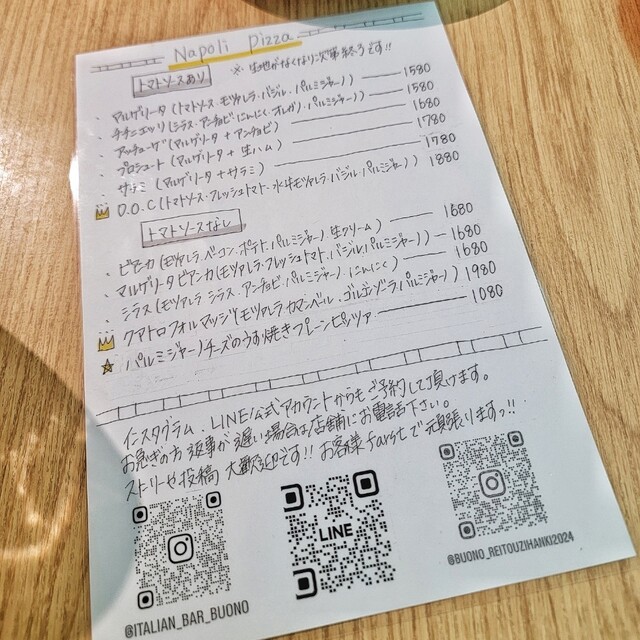 Napoli Pizza
※ 生地がなくなり次第終了です!!
トマトソースあり
・マルゲリータ (トマトソース・モツァレラ・バジル・パルミジャーノ) 1580
・チチニエッリ (シラス・アンチョビ・にんにく・オレガノ・パルミジャーノ) 1580
・アンチョーヴィ (マルゲリータ + アンチョビ) 1680
・プロシュート (マルゲリータ + 生ハム) 1780
・サラミ (マルゲリータ + サラミ) 1780
D.O.C (トマトソース・フレッシュトマト・水牛モツァレラ・バジル・パルミジャーノ) 1880
トマトソースなし
・ビアンカ (モツァレラ・ベーコン・ポテト・パルミジャーノ・生クリーム) 1680
・マルゲリータビアンカ (モツァレラ・フレッシュトマト・バジル・パルミジャーノ) 1680
・シラス (モツァレラ・シラス・アンチョビ・パルミジャーノ・にんにく) 1680
クアトロフォルマッジ (モツァレラ・カマンベール・ゴルゴンゾーラ・パルミジャーノ) 1980
☆ パルミジャーノチーズのうす焼きプレーンピッツァ 1080
インスタグラム、LINE公式アカウントからもご予約して頂けます。
お急ぎの方、返事が遅い場合は店舗にお電話下さい。
ストーリーや投稿 大歓迎です!! お客様farstで頑張りますっ!!
LINE
@ITALIAN_BAR_BUONO
@BUONO_REITOUZIHANKI2024